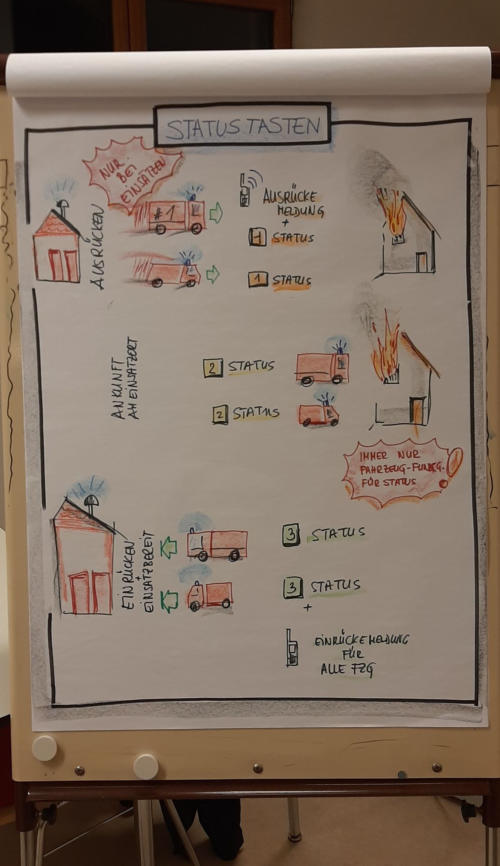 STATUSTASTEN
NUR
BEI
EINSÄTZEN
AUSRÜCKEN
#1
AUSRÜCKE
MELDUNG
+
1 STATUS
1 STATUS
ANKUNFT
AM EINSATZORT
2 STATUS
2 STATUS
IMMER NUR
FAHRZEUG-FUNKG.
FÜR STATUS
EINRÜCKEN
+
EINSATZBEREIT
3 STATUS
3 STATUS
+
EINRÜCKEMELDUNG
FÜR
ALLE FZG